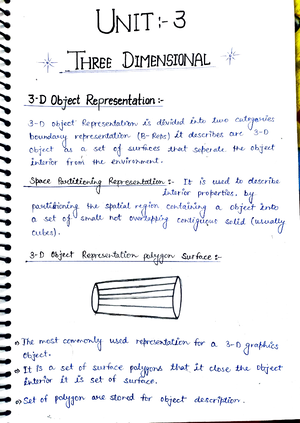 UNIT :- 3
THREE DIMENSIONAL
3-D Object Representation :-
3-D object Representation is divided into two categories
boundary representation (B-Reps) it describes are 3-D
object as a set of surfaces that seperate the object
interior from the environment.
Space Partitioning Representation :- It is used to describe
interior properties, by
partitioning the spatial region containing a object into
a set of small not overlapping contiguous solid (usually
cubes).
3-D Object Representation polygon Surface :-
The most commonly used representation for a 3-D graphics
object.
It Is a set of surface polygons that it close the object
interior it is set of surface.
Set of polygon are stored for object description.